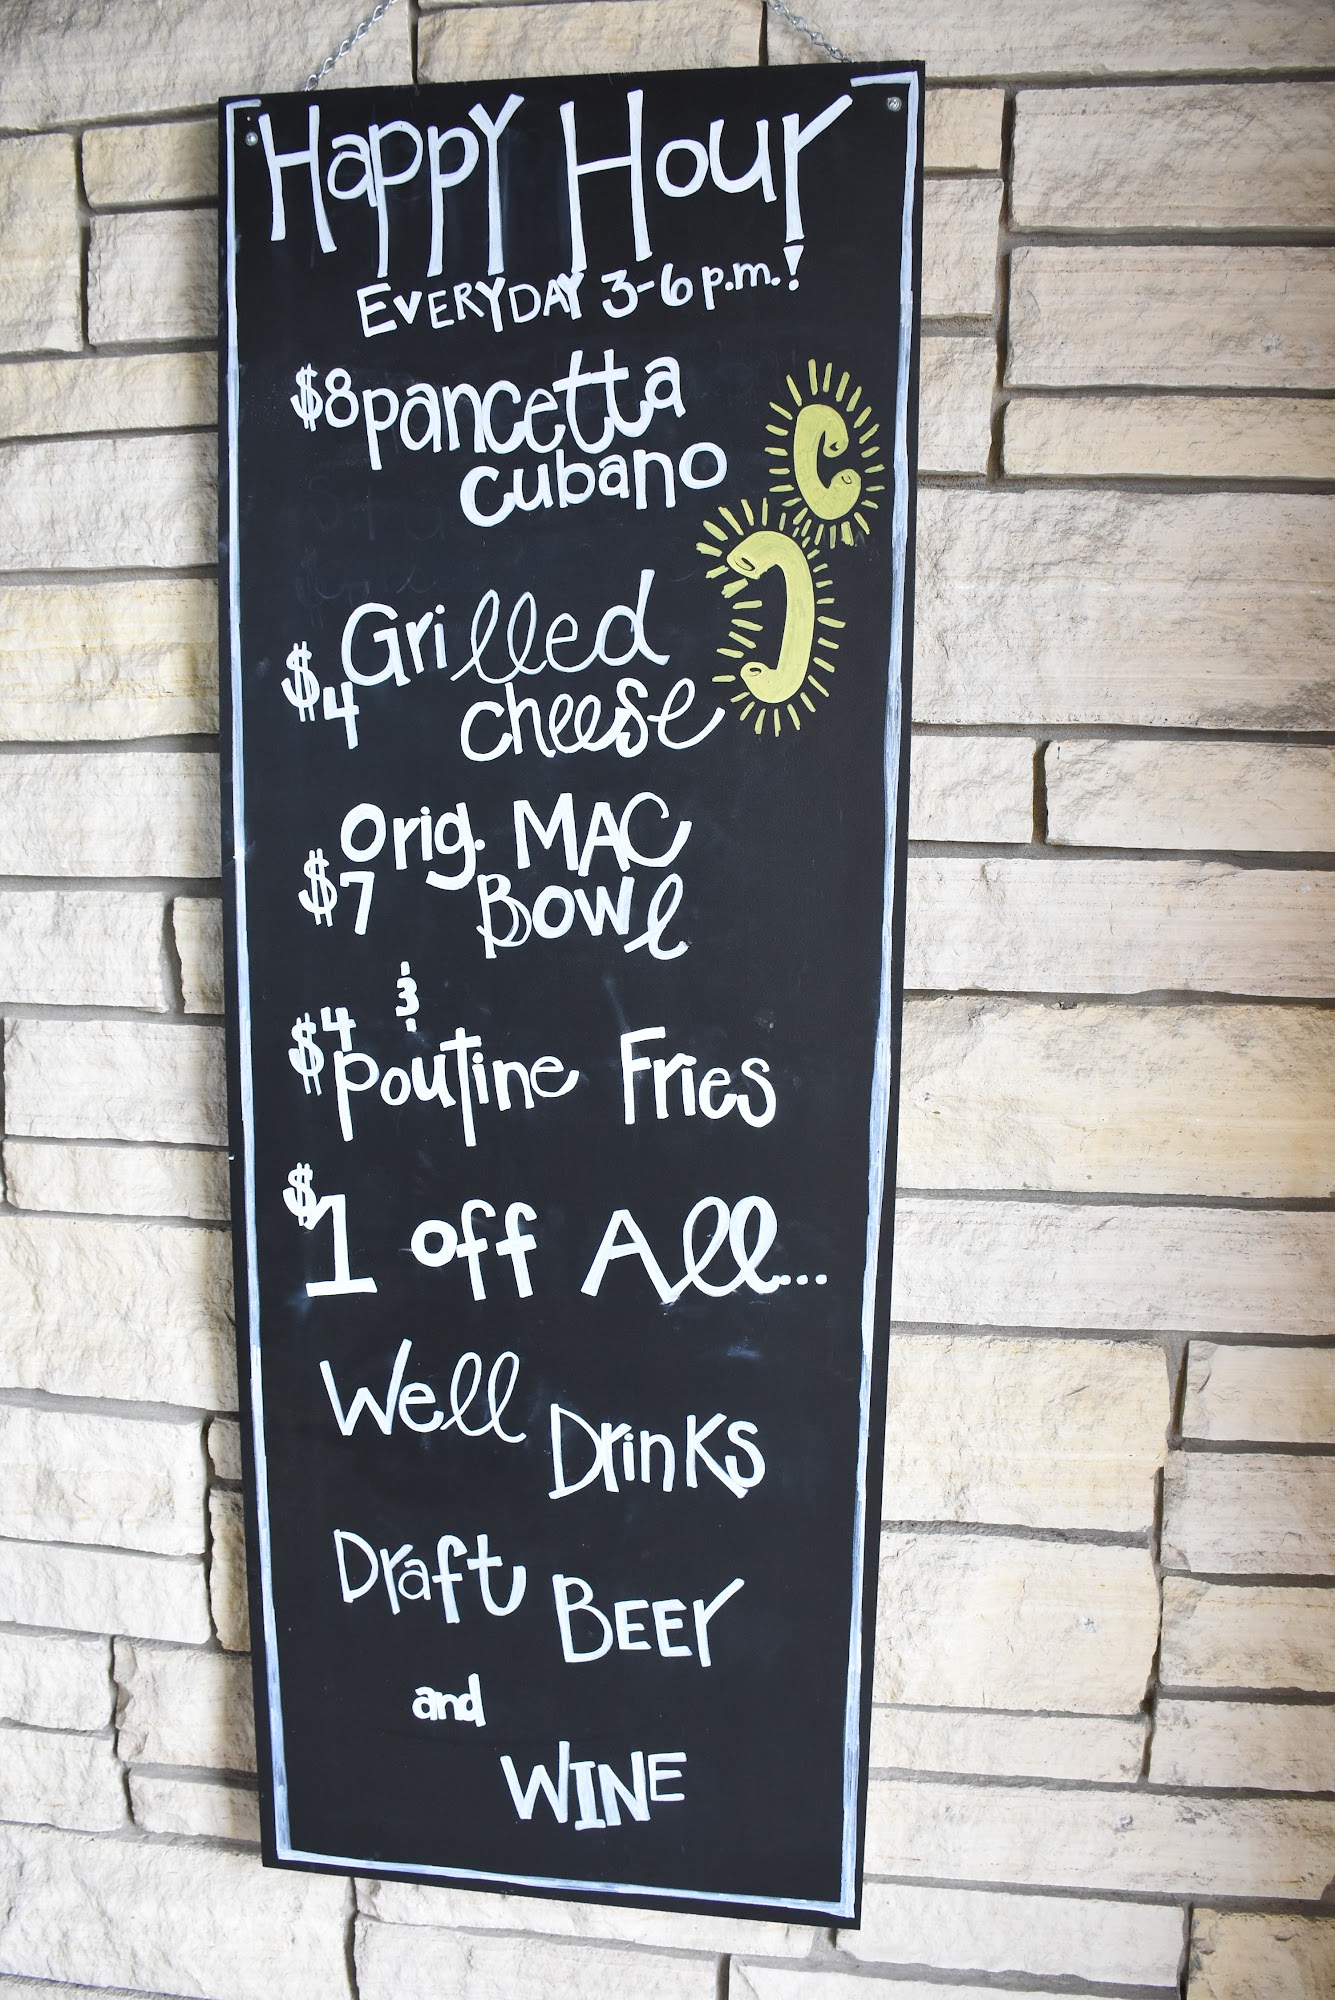 Happy Hour
EVERYDAY 3-6 p.m.!
$8 pancetta
cubano
$4 Grilled
cheese
Orig. MAC
$7 Bowl
&
$4 poutine Fries
$1 off All...
Well
Drinks
Draft
BEEr
and
WINE